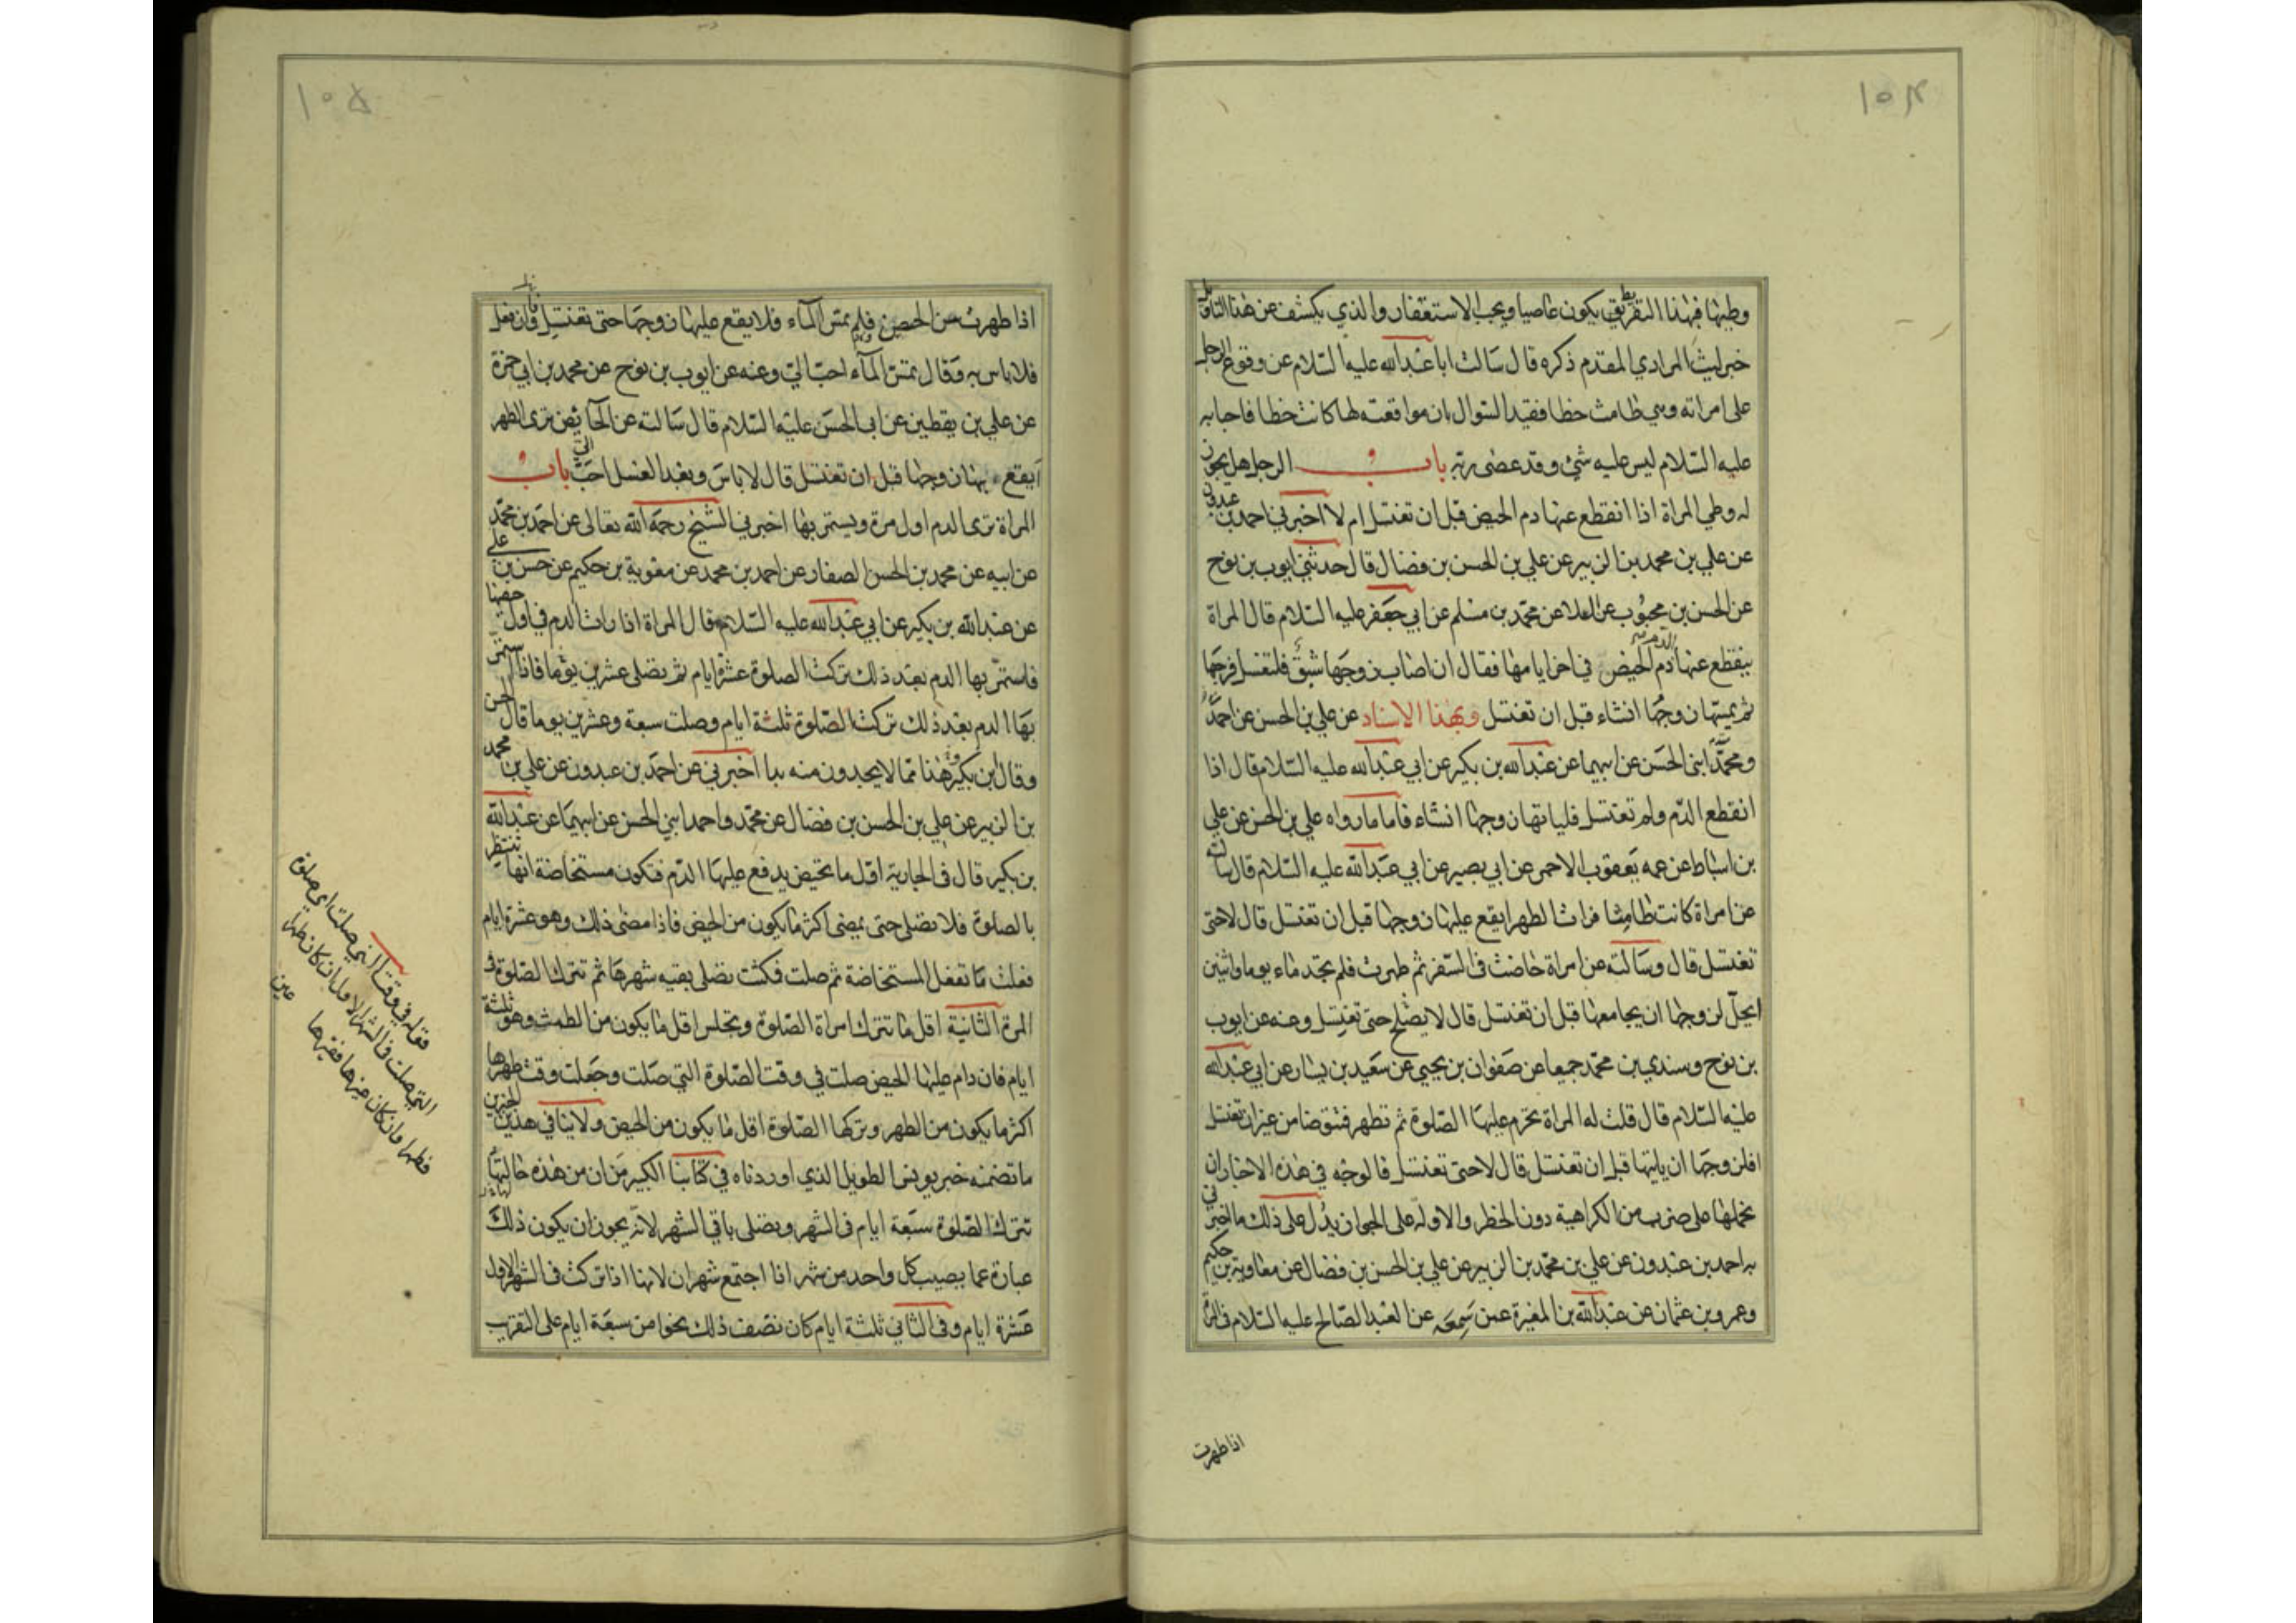 ١٠٤
وطيها فهذا التفريط يكون عاصيا ويجب الاستغفار والذي يكشف عن هذا التاويل
خبر ليث المرادي المقدم ذكره قال سالت ابا عبدالله عليه السلام عن وقوع الرجل
على امراته وهي طامث خطا فقيد السوال بان مواقعته لها كانت خطا فاجابه
عليه السلام ليس عليه شئ وقد عصى ربه باب الرجل هل يجوز
له وطي المراة اذا انقطع عنها دم الحيض قبل ان تغتسل ام لا اخبرني احمد بن عبدون
عن علي بن محمد بن الزبير عن علي بن الحسن بن فضال قال حدثني ايوب بن نوح
عن الحسن بن محبوب عن العلا عن محمد بن مسلم عن ابي جعفر عليه السلام قال المراة
ينقطع عنها الدم دم الحيض في اخر ايامها فقال ان اصاب زوجها شبق فلتغسل فرجها
ثم يمسها زوجها انشاء قبل ان تغتسل وبهذا الاسناد عن علي بن الحسن عن احمد
ومحمد ابنى الحسن عن ابيهما عن عبدالله بن بكير عن ابي عبدالله عليه السلام قال اذا
انقطع الدم ولم تغتسل فلياتها زوجها انشاء فاما مارواه علي بن الحسن عن علي
بن اسباط عن عمه يعقوب الاحمر عن ابي بصير عن ابي عبدالله عليه السلام قال سالته
عن امراة كانت طامثا فرات الطهر ايقع عليها زوجها قبل ان تغتسل قال لا حتى
تغتسل قال وسالته عن امراة حاضت في السفر ثم طهرت فلم تجد ماء يوما واثنين
ايحل لزوجها ان يجامعها قبل ان تغتسل قال لا يصلح حتى تغتسل وعنه عن ايوب
بن نوح وسندي بن محمد جميعا عن صفوان بن يحيى عن سعيد بن يسار عن ابي عبدالله
عليه السلام قال قلت له المراة تحرم عليها الصلوة ثم تطهر فتتوضا من غير ان تغتسل
افلزوجها ان ياتيها قبل ان تغتسل قال لا حتى تغتسل فالوجه في هذه الاخبار ان
نحملها على ضرب من الكراهية دون الحظر والاوله على الجواز يدل على ذلك ما اخبرني
به احمد بن عبدون عن علي بن محمد بن الزبير عن علي بن الحسن بن فضال عن معاوية بن حكيم
وعمرو بن عثمان عن عبدالله بن المغيرة عمن سمعه عن العبد الصالح عليه السلام في المراة
اذا طهرت
١٠٥
اذا طهرت من الحيض ولم تمس المآء فلا يقع عليها زوجها حتى تغتسل فان فعل
فلا باس به وقال تمس المآء احب الي وعنه عن ايوب بن نوح عن محمد بن ابي حمزة
عن علي بن يقطين عن ابي الحسن عليه السلام قال سالته عن الحايض ترى الطهر
ايقع بها زوجها قبل ان تغتسل قال لا باس وبعد الغسل احب الي باب
المراة ترى الدم اول مرة ويستمر بها اخبرني الشيخ رحمه الله تعالى عن احمد بن محمد
عن ابيه عن محمد بن الحسن الصفار عن احمد بن محمد عن معوية بن حكيم عن حسن بن علي
عن عبدالله بن بكير عن ابي عبدالله عليه السلام قال المراة اذا رات الدم في اول حيضها
فاستمر بها الدم بعد ذلك تركت الصلوة عشرة ايام ثم تصلى عشرين يوما فاذا استمر
بها الدم بعد ذلك تركت الصلوة ثلثة ايام وصلت سبعة وعشرين يوما قال الحسن
وقال بن بكير وهذا مما لا يجدون منه بدا اخبرني عن احمد بن عبدون عن علي بن محمد
بن الزبير عن علي بن الحسن بن فضال عن محمد واحمد ابني الحسن عن ابيهما عن عبدالله
بن بكير قال في الجارية اول ما تحيض يدفع عليها الدم فتكون مستحاضة انها تنتظر
بالصلوة فلا تصلى حتى يمضى اكثر ما يكون من الحيض فاذا مضى ذلك وهو عشرة ايام
فعلت ما تفعل المستحاضة ثم صلت فمكثت تصلى بقيه شهرها ثم تترك الصلوة في
المرة الثانية اقل ما تترك امراة الصلوة وتجلس اقل ما يكون من الطمث وهو ثلثة
ايام فان دام عليها الحيض صلت في وقت الصلوة التي صلت وجعلت وقت طهرها
اكثر ما يكون من الطهر وتركها الصلوة اقل ما يكون من الحيض ولا ينافي هذين الخبرين
ما تضمنه خبر يونس الطويل الذي اوردناه في كتابنا الكبير من ان من هذه حالتها
تترك الصلوة سبعة ايام في الشهر وتصلى باقي الشهر لانه يجوز ان يكون ذلك
عبارة عما يصيب كل واحد من شهر اذا اجتمع شهران لانها اذا تركت في الشهر الاول
عشرة ايام وفي الثاني ثلثة ايام كان نصف ذلك نحوا من سبعة ايام على التقريب
قوله في وقت التي صلت اي صلوة
التي صلت في الشهر الاول ان كان طهرا
فطهرا وان كان غيرها فغيرها